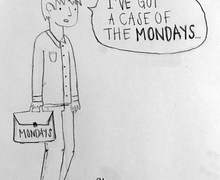 I'VE GOT
A CASE OF
THE MONDAYS...
MONDAYS